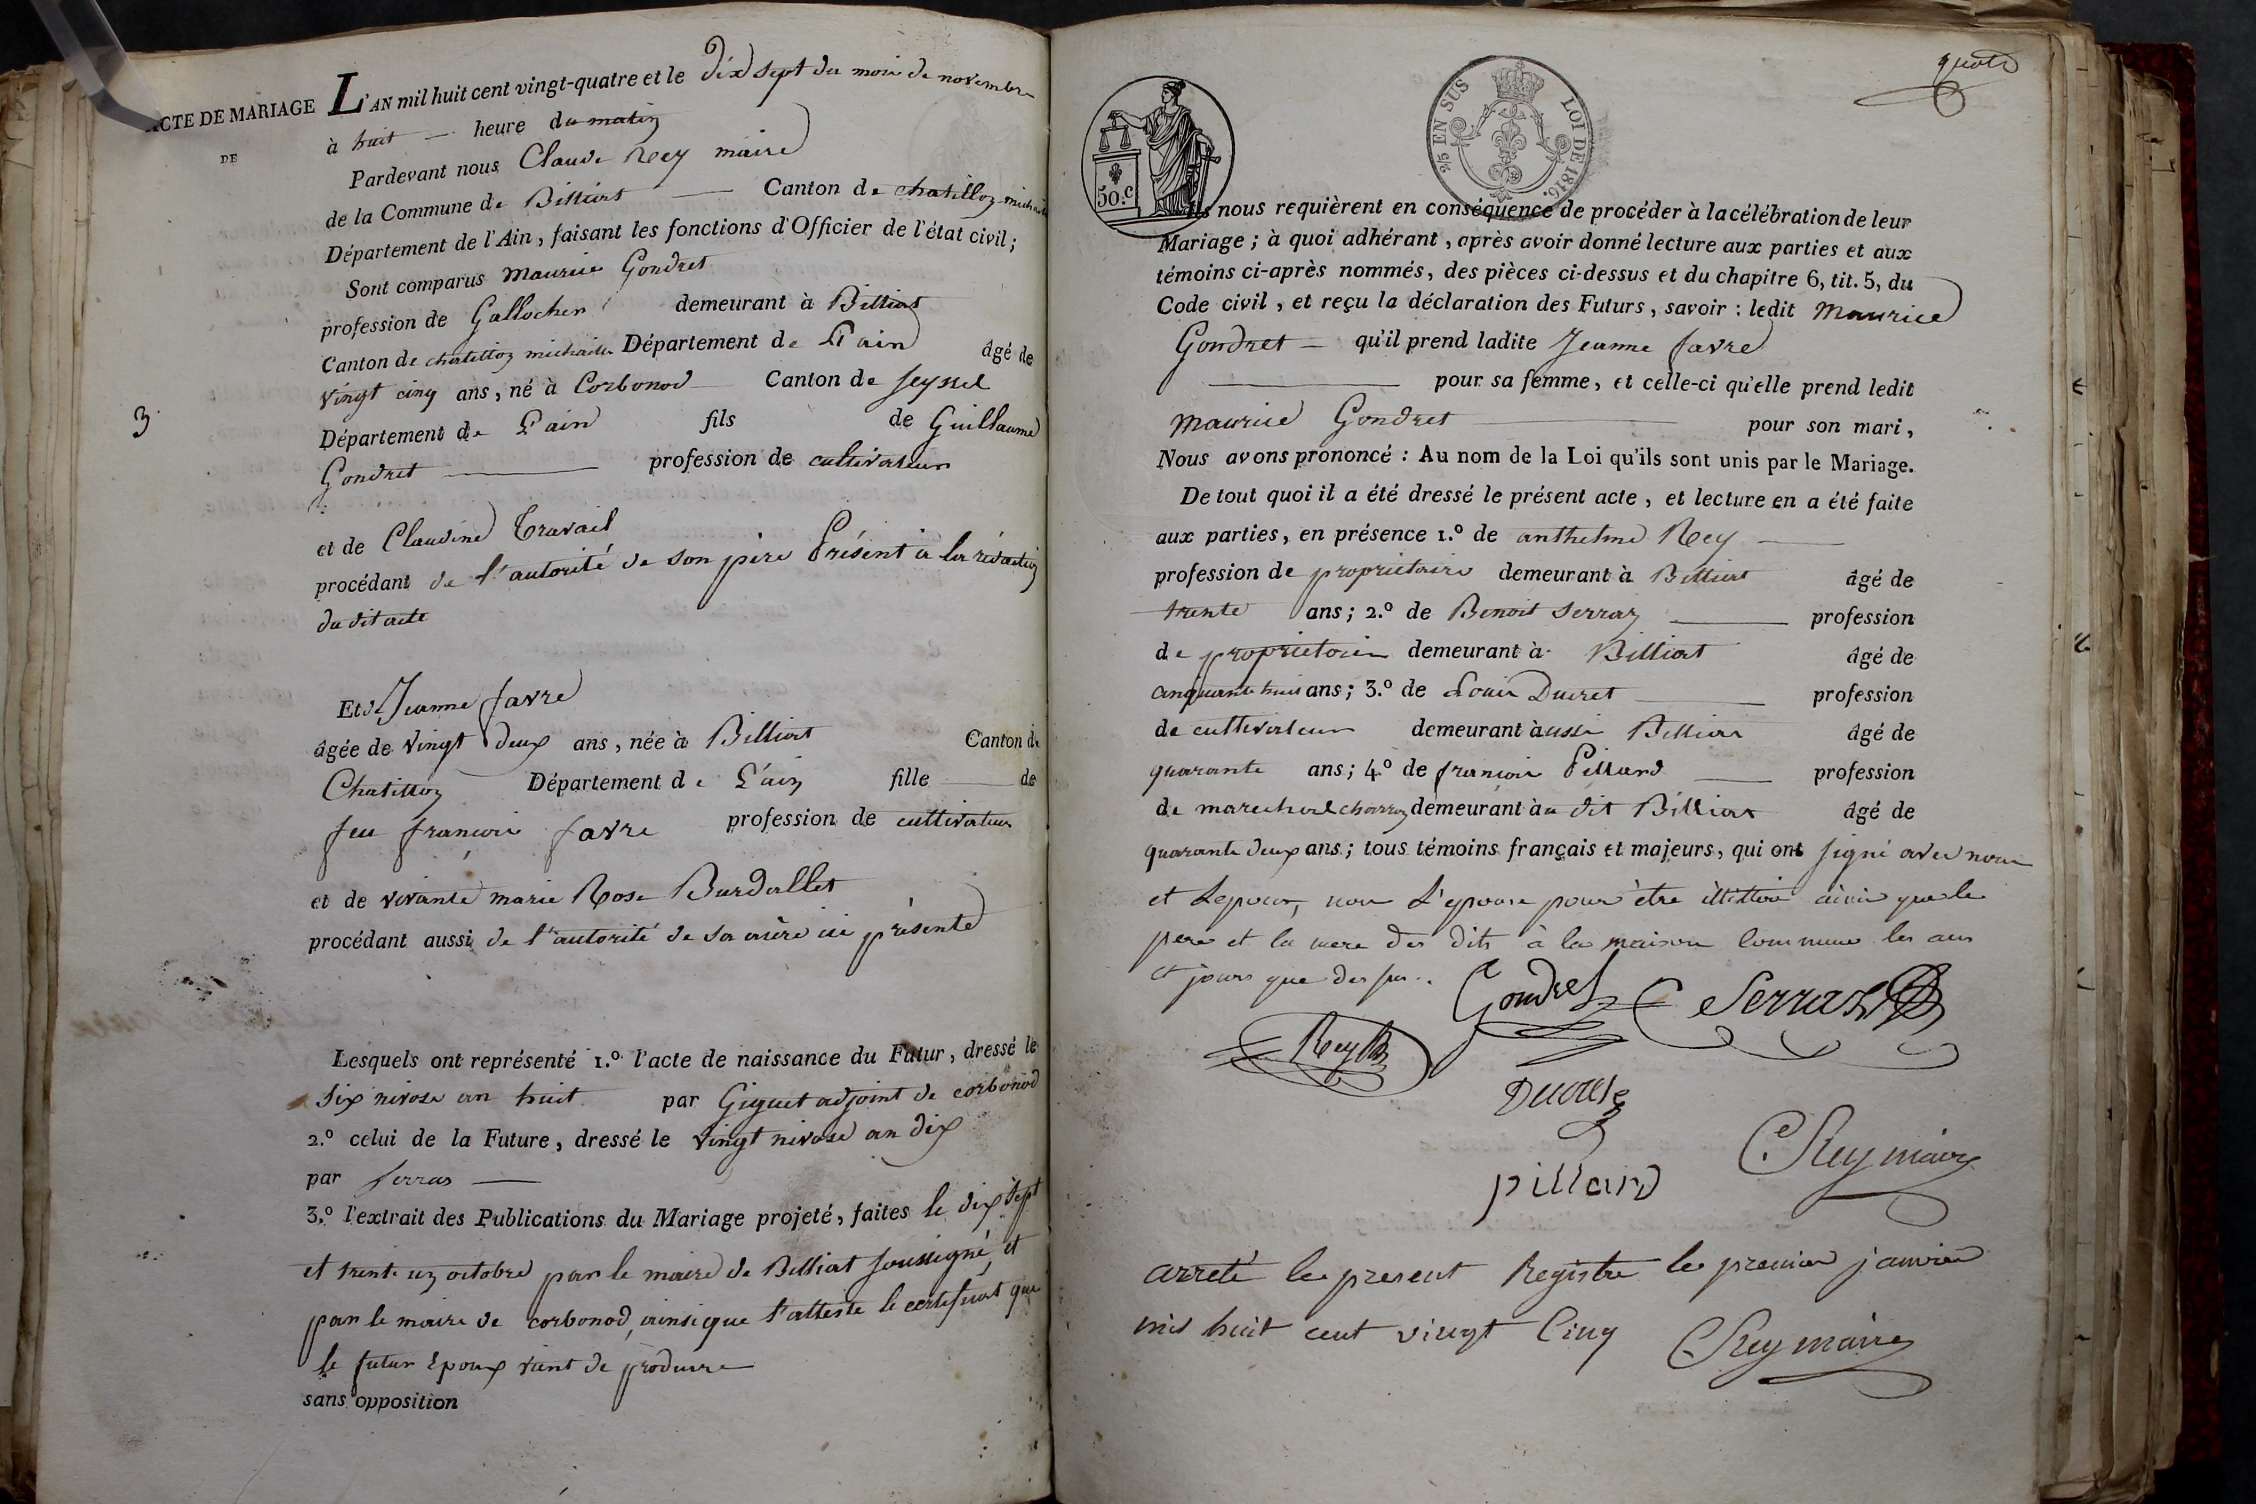 ACTE DE MARIAGE
DE
3
L'AN mil huit cent vingt-quatre et le dix sept du mois de novembre
à huit heure du matin
Pardevant nous Claude Rey maire
de la Commune de Billiat Canton de chatillon michaille
Département de l'Ain, faisant les fonctions d'Officier de l'état civil;
Sont comparus Maurice Gondret
profession de Gallocher demeurant à Billiat
Canton de chatillon michaille Département de L'ain âgé de
vingt cinq ans, né à Corbonod Canton de Seyssel
Département de L'ain fils de Guillaume
Gondret profession de cultivateur
et de Claudine Travail
procédant de l'autorité de son père Présent à la rédaction
du dit acte
Et Jeanne favre
âgée de vingt deux ans, née à Billiat Canton de
Chatillon Département de L'ain fille de
feu françois favre profession de cultivateur
et de vivante marie Rose Burdallet
procédant aussi de l'autorité de sa mère ici présente
Lesquels ont représenté 1.º l'acte de naissance du Futur, dressé le
six nivose an huit par Giguet adjoint de corbonod
2.º celui de la Future, dressé le vingt nivose an dix
par Serras
3.º l'extrait des Publications du Mariage projeté, faites le dix sept
et trente un octobre par le maire de Billiat soussigné, et
par le maire de corbonod, ainsi que l'atteste le certificat que
le futur Epoux vient de produire
sans opposition
50.c
2/5 EN SUS LOI DE 1816.
Ils nous requièrent en conséquence de procéder à la célébration de leur
Mariage; à quoi adhérant, après avoir donné lecture aux parties et aux
témoins ci-après nommés, des pièces ci-dessus et du chapitre 6, tit. 5, du
Code civil, et reçu la déclaration des Futurs, savoir: ledit Maurice
Gondret qu'il prend ladite Jeanne favre
pour sa femme, et celle-ci qu'elle prend ledit
Maurice Gondret pour son mari,
Nous avons prononcé: Au nom de la Loi qu'ils sont unis par le Mariage.
De tout quoi il a été dressé le présent acte, et lecture en a été faite
aux parties, en présence 1.º de anthelme Rey
profession de propriétaire demeurant à Billiat âgé de
trente ans; 2.º de Benoit Serraz profession
de propriétaire demeurant à Billiat âgé de
cinquante huit ans; 3.º de Louis Ducret profession
de cultivateur demeurant à aussi Billiat âgé de
quarante ans; 4.º de françois Pillard profession
de marechal charron demeurant à u dit Billiat âgé de
quarante deux ans; tous témoins français et majeurs, qui ont signé avec nous
et L'epoux, non L'epouse pour être illitéré ainsi que le
pere et la mere des dits à la maison commune les ans
et jours que dessus.
Gondret Serraz
Rey
Ducret
C Rey maire
pillard
arreté le present Registre le premier janvier
mil huit cent vingt Cinq C Rey maire